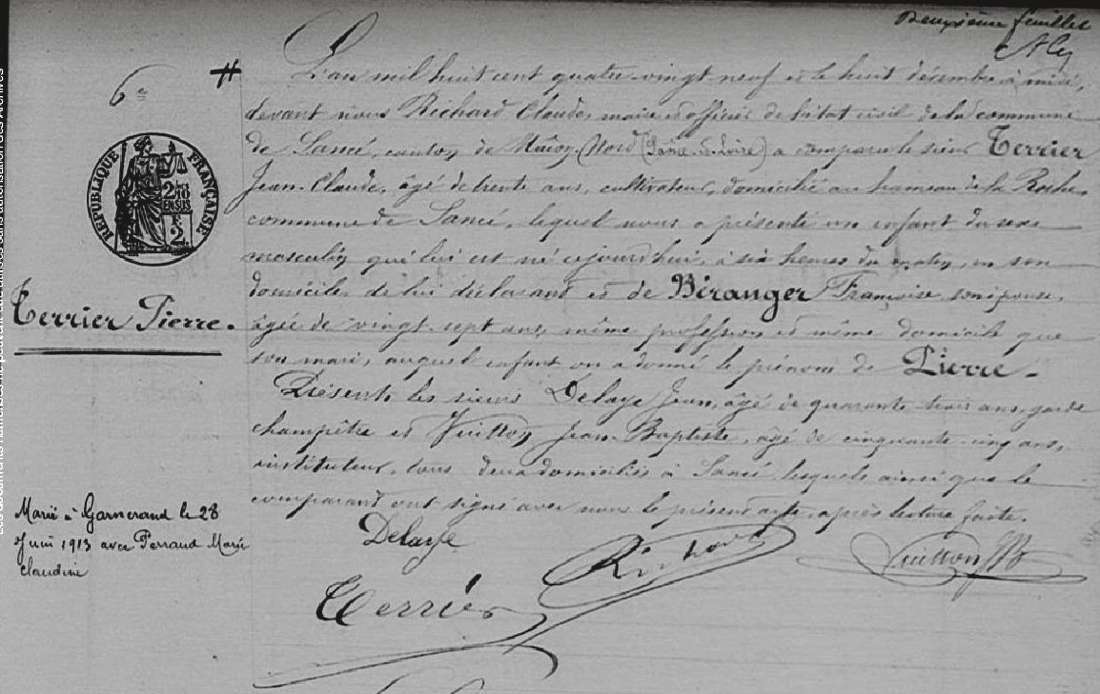 Deuxième feuillet
6e
L'an mil huit cent quatre-vingt neuf et le huit décembre à midi,
devant nous Richard Claude, maire et officier de l'état civil de la commune
de Sancé, canton de Mâcon-Nord (Saône-&-Loire) a comparu le sieur Terrier
Jean-Claude, âgé de trente ans, cultivateur, domicilié au hameau de la Roche,
commune de Sancé, lequel nous a présenté un enfant du sexe
masculin qui lui est né cejourd'hui, à six heures du matin, en son
domicile, de lui déclarant et de Béranger Françoise, son épouse,
âgée de vingt-sept ans, même profession et même domicile que
son mari, auquel enfant on a donné le prénom de Pierre.-
Présents les sieurs Delaye Jean, âgé de quarante trois ans, garde
champêtre et Vuitton Jean-Baptiste, âgé de cinquante-cinq ans,
instituteur, tous deux domiciliés à Sancé, lesquels ainsi que le
comparant ont signé avec nous le présent acte, après lecture faite.
Delaye
Richard
Vuitton JB
Terrier
RÉPUBLIQUE FRANÇAISE
2
Terrier Pierre.
Marié à Garnerand le 28
Juin 1913 avec Perraud Marie
Claudine